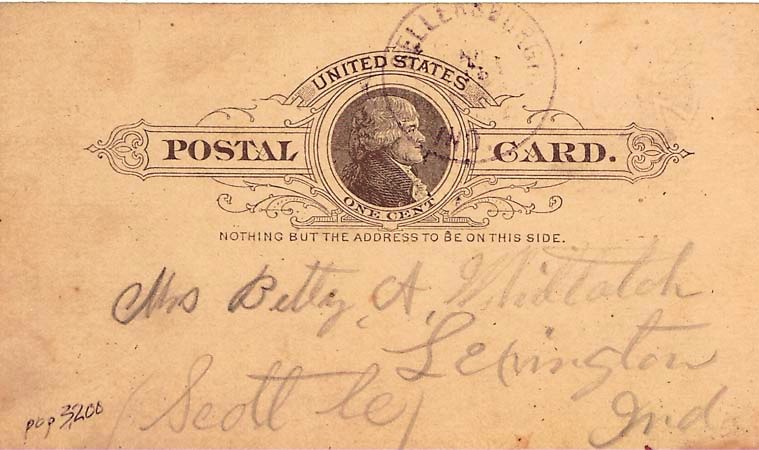 ELLERSBURGH
IND
UNITED STATES
POSTAL CARD.
ONE CENT
NOTHING BUT THE ADDRESS TO BE ON THIS SIDE.
Mrs Betty, A,
Lexington
Scott Co
Ind
pop 3,200